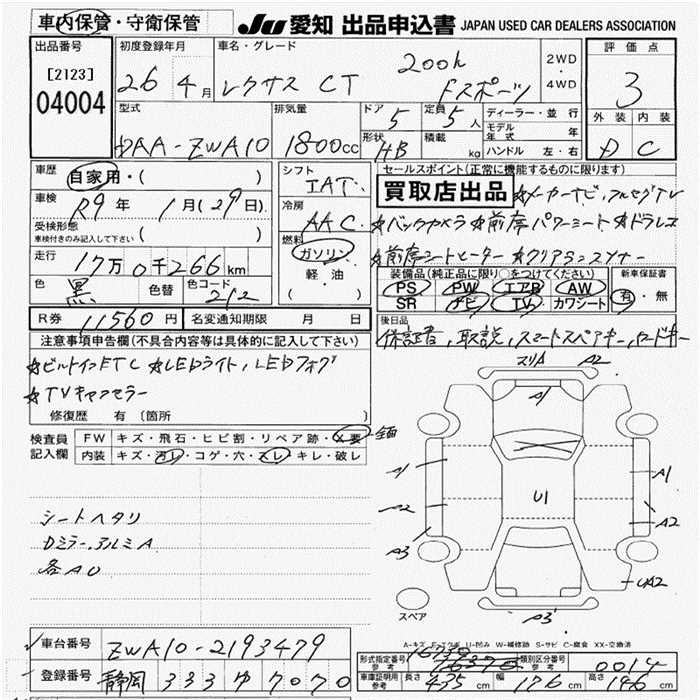 車内保管・守衛保管
JU 愛知 出品申込書 JAPAN USED CAR DEALERS ASSOCIATION
出品番号 初度登録年月 車名・グレード 評価点
[2123] 26年 4月 レクサス CT 200h Fスポーツ 2WD・4WD 3
04004
型式 排気量 ドア 定員 ディーラー・並行 外装 内装
DAA-ZWA10 1800cc 5 5人 モデル年式 年 D C
形状 HB 積載 kg ハンドル 左・右
車歴 自家用・( ) シフト IAT セールスポイント(正常に機能するものに限り)
買取店出品 ☆メーカーナビ,フルセグTV
車検 R9年 1月(29日) 冷房 AAC ☆バックカメラ ☆前席パワーシート ☆ドラレコ
受検形態 車検付きのみ記入して下さい ( ) 燃料 ガソリン・軽油 ( ) ☆前席シートヒーター ☆クリアランスソナー
走行 17万0千266km 装備品(純正品に限り○をつけてください) 新車保証書
PS PW エアB AW 有・無
SR ナビ TV カワシート
色 黒 色替 色コード 212
R券 11560円 名変通知期限 月 日 後日品
保証書,取説,スマートスペアキー,カードキー
注意事項申告欄(不具合内容等は具体的に記入して下さい)
☆ビルトインETC ☆LEDライト,LEDフォグ
☆TVキャンセラー
修復歴 有(箇所 )
検査員記入欄 FW キズ・飛石・ヒビ割・リペア跡・X要 全面
内装 キズ・汚レ・コゲ・穴・スレ・キレ・破レ
シートヘタリ
Dミラー,アルミA
各AU
スリA A2
A1
A1 A1
U1
A2 A2
A3
UA2
A3
スペア
A-キズ U-凹み W-補修跡 S-サビ C-腐食 XX-交換済
車台番号 ZWA10-2193479
登録番号 静岡 333 ゆ 7070
形式指定番号 参考 16739 類別区分番号 参考 0014
車庫証明用 参考 長さ 435cm 幅 176cm 高さ 146cm